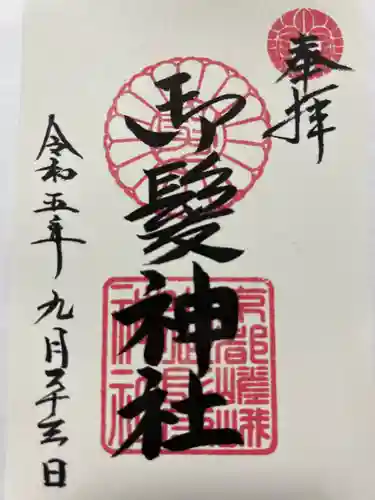 奉拝
御髪神社
令和五年九月二十三日